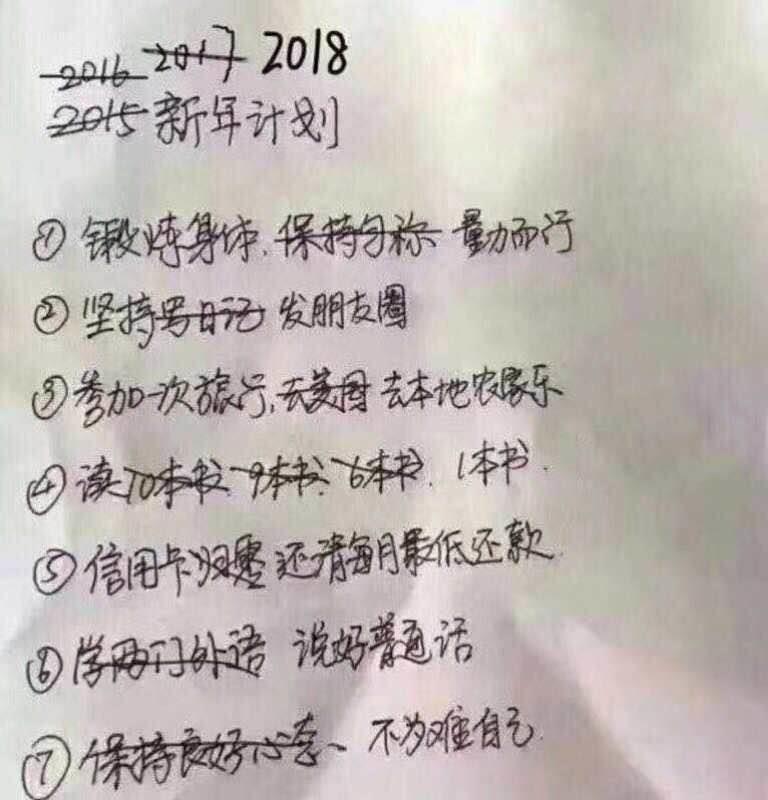 2016 2017 2018
2015 新年计划
① 锻炼身体、保持匀称 量力而行
② 坚持写日记 发朋友圈
③ 参加一次旅行,去美国 去本地农家乐
④ 读10本书、9本书、6本书、1本书.
⑤ 信用卡归零 还清每月最低还款
⑥ 学两门外语 说好普通话
⑦ 保持良好心态、不为难自己.